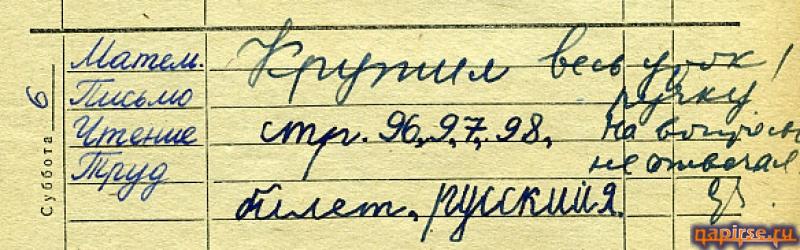 Суббота 6
Матем. Крутил весь урок!
Письмо ручку
Чтение стр. 96, 97, 98, На вопросы
Труд не отвечал
билет, русский я.
qapirse.ru